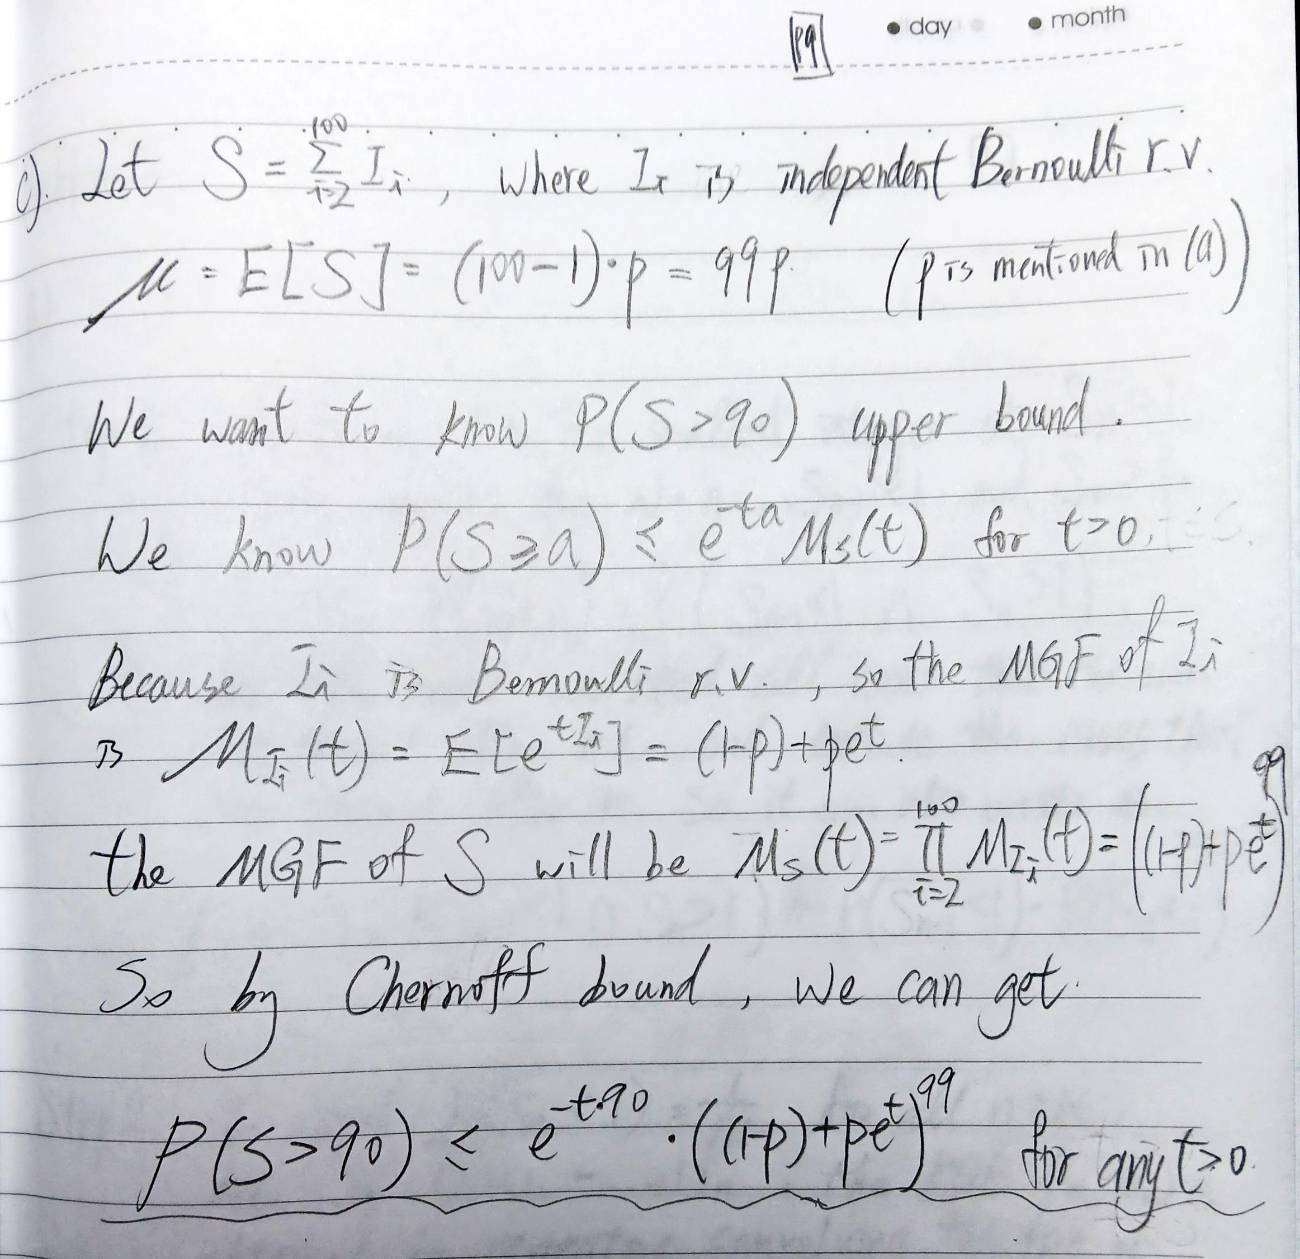 P9 • day • month
c). Let S = \sum_{i=2}^{100} I_i , where I_i is independent Bernoulli r.v.
μ = E[S] = (100-1)·p = 99p (p is mentioned in (a))
We want to know P(S>90) upper bound.
We know P(S≥a) ≤ e^{-ta} M_S(t) for t>0.
Because I_i is Bernoulli r.v. , so the MGF of I_i
is M_{I_i}(t) = E[e^{tI_i}] = (1-p)+pe^t.
the MGF of S will be M_S(t) = \prod_{i=2}^{100} M_{I_i}(t) = ((1-p)+pe^t)^{99}
So by Chernoff bound, we can get.
P(S>90) ≤ e^{-t·90} · ((1-p)+pe^t)^{99} for any t>0.